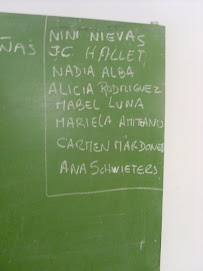 NINI NIEVAS
ÑAS JC HALLET
NADIA ALBA
ALICIA RODRIGUEZ
MABEL LUNA
MARIELA
CARMEN MARDONES
ANA SCHWIETERS